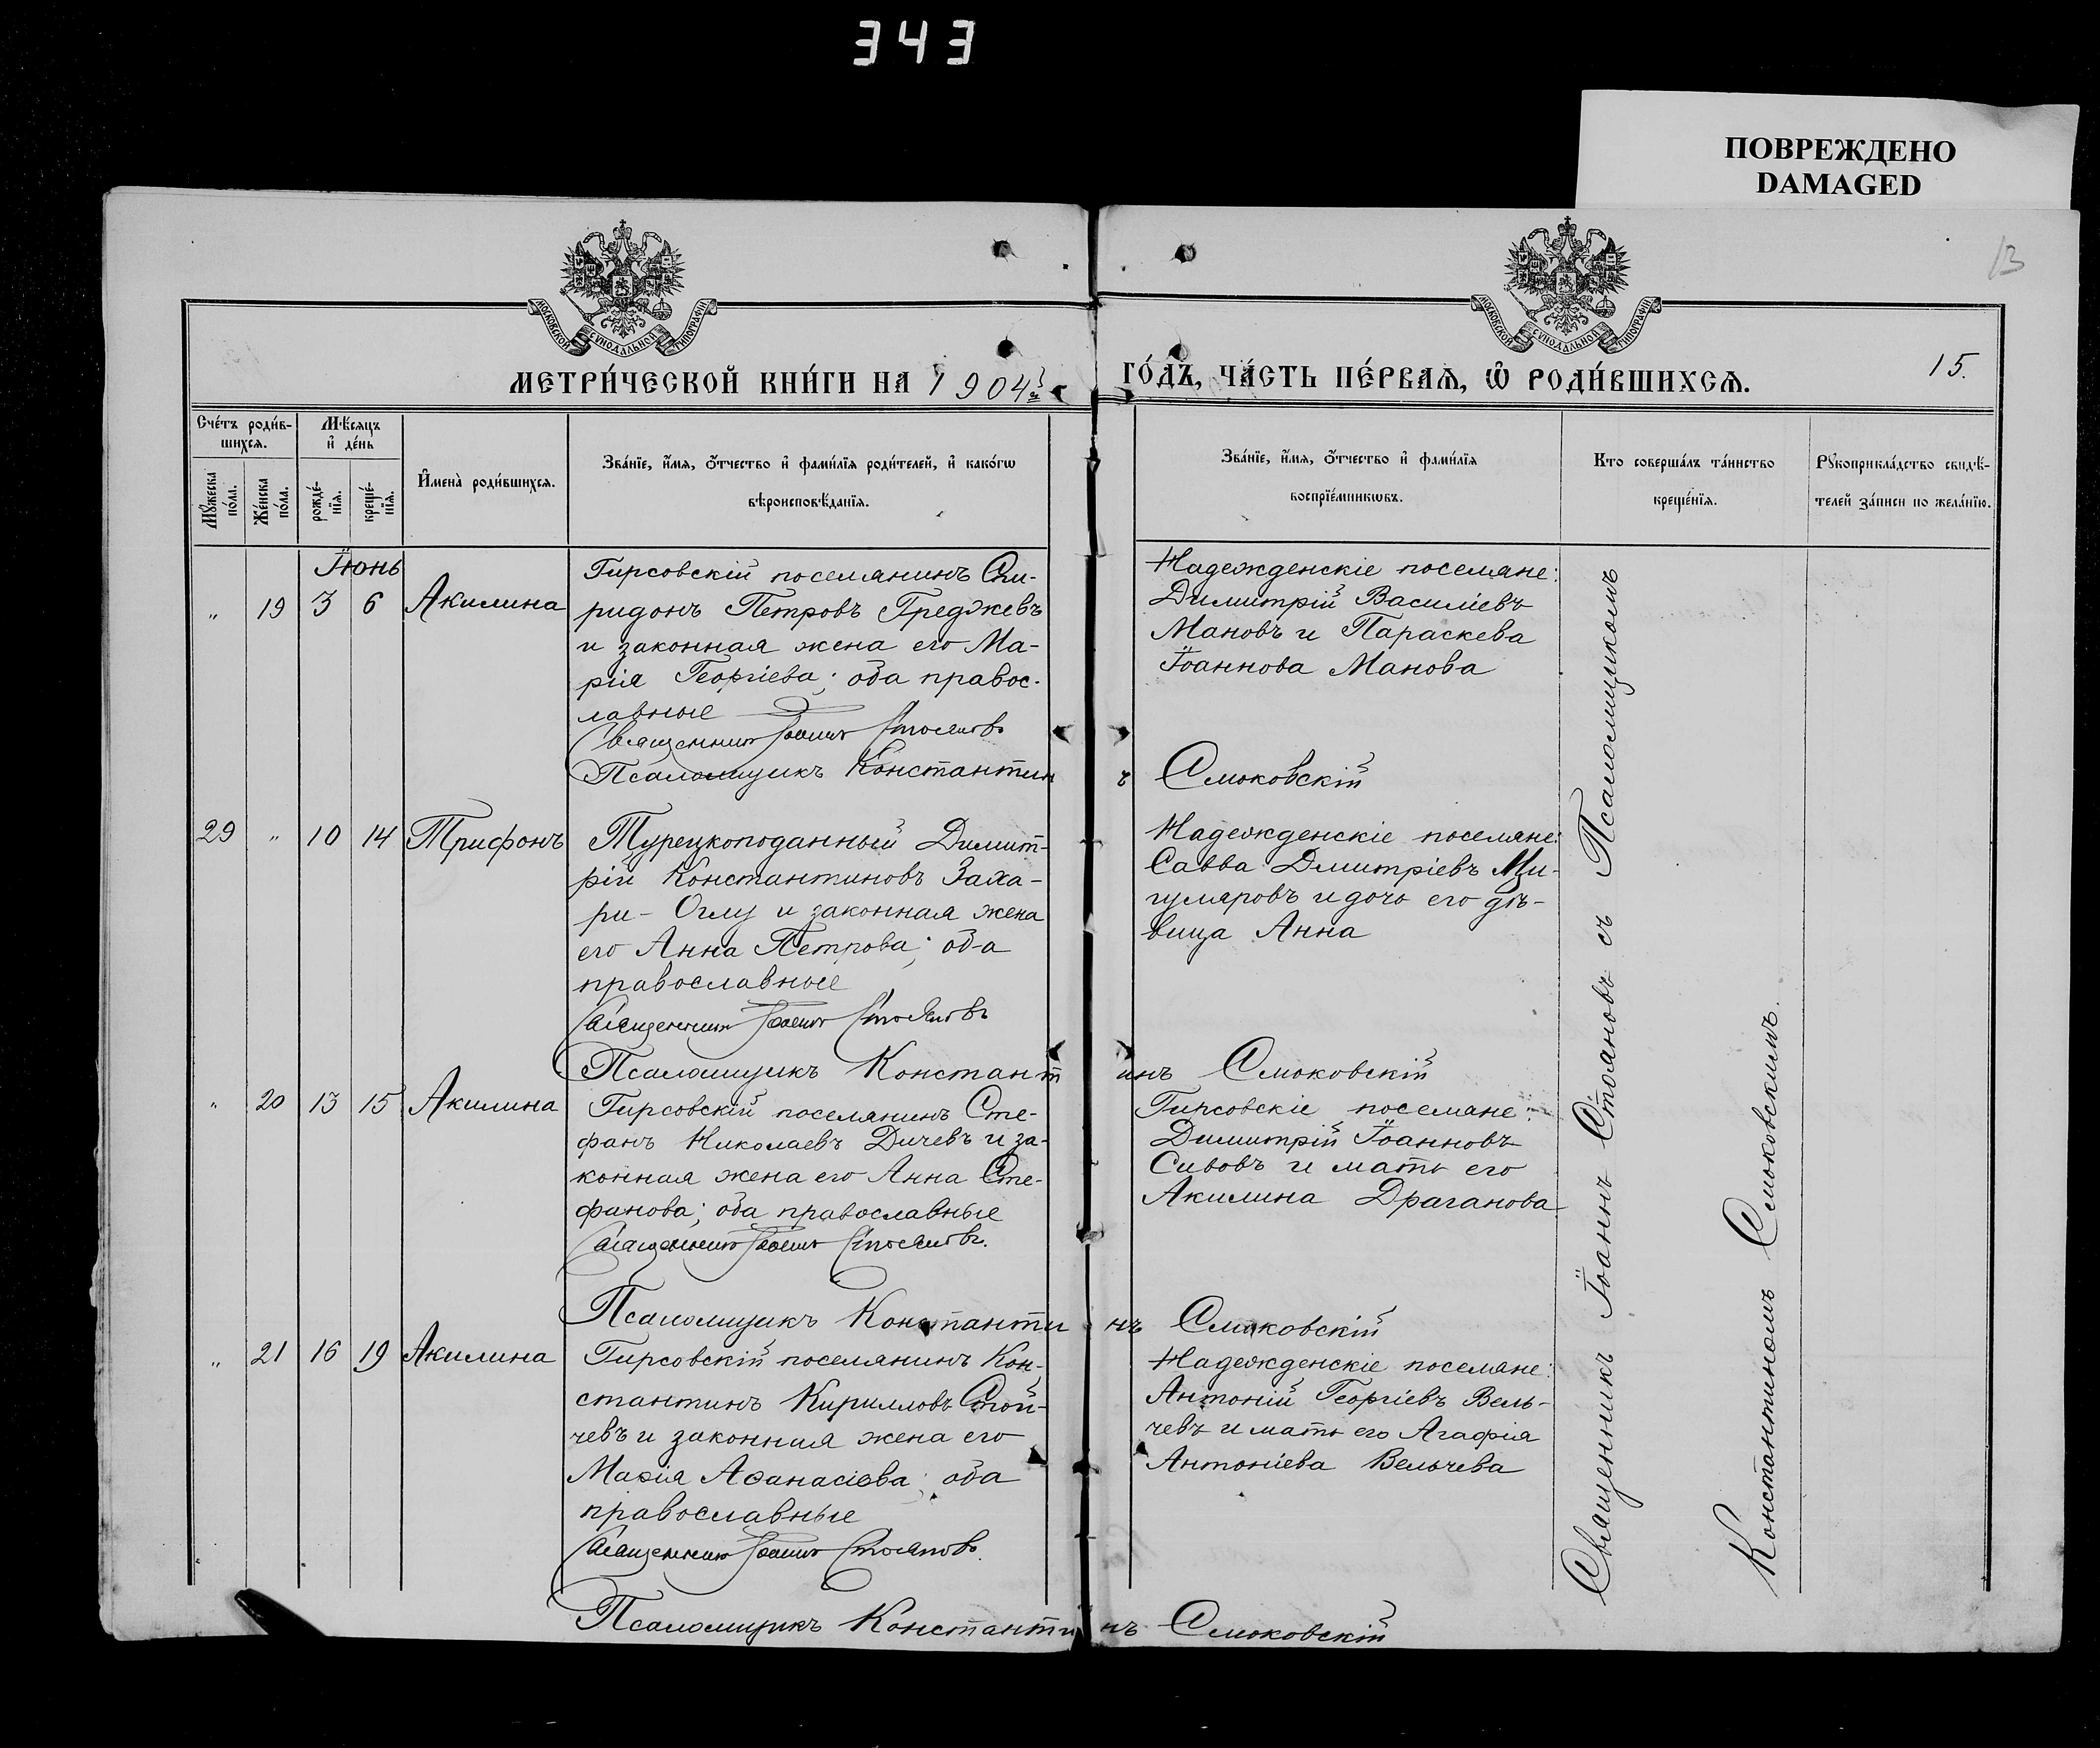 343
ПОВРЕЖДЕНО
DAMAGED
13
МОСКОВСКОЙ СѴНОДАЛЬНОЙ ТИПОГРАФІИ
МОСКОВСКОЙ СѴНОДАЛЬНОЙ ТИПОГРАФІИ
МЕТРИ́ЧЕСКОЙ КНИ́ГИ НА 1904й ГО́ДЪ, ЧА́СТЬ ПЕ́РВАѦ, Ѡ҆ РОДИ́ВШИХСѦ. 15.
Сче́тъ роди́в-
шихсѧ.
Мꙋ́жеска
по́ла.
Же́нска
по́ла.
Мѣ́сѧцъ
и҆ де́нь
рожде́-
нїѧ.
креще́-
нїѧ.
И҆мена̀ роди́вшихсѧ.
Зва́нїе, и҆́мѧ, ѻ҆́тчество и҆ фами́лїѧ роди́телей, и҆ како́гѡ
вѣроисповѣ́данїѧ.
Зва́нїе, и҆́мѧ, ѻ҆́тчество и҆ фами́лїѧ
воспрїе́мникѡвъ.
Кто соверша́лъ та́инство
креще́нїѧ.
Рꙋкоприкла́дство свидѣ́-
телей за́писи по жела́нїю.
Іюнь
„ 19 3 6 Акилина
Гирсовскій поселянинъ Спи-
ридонъ Петровъ Греджевъ
и законная жена его Ма-
рія Георгіева; оба правос-
лавные
Священникъ Іоаннъ Стояновъ
Псаломщикъ Константинъ Смоковскій
Надежденскіе поселяне:
Димитрій Василіевъ
Мановъ и Параскева
Іоаннова Манова
29 „ 10 14 Трифонъ
Турецкоподанный Димит-
рій Константиновъ Заха-
ри-Оглу и законная жена
его Анна Петрова; оба
православные
Священникъ Іоаннъ Стояновъ
Псаломщикъ Константинъ Смоковскій
Надежденскіе поселяне:
Савва Дмитріевъ Ми-
гуляровъ и дочь его дѣ-
вица Анна
„ 20 13 15 Акилина
Гирсовскій поселянинъ Сте-
фанъ Николаевъ Дичевъ и за-
конная жена его Анна Сте-
фанова; оба православные
Священникъ Іоаннъ Стояновъ.
Псаломщикъ Константинъ Смоковскій
Гирсовскіе поселяне:
Димитрій Іоанновъ
Сивовъ и мать его
Акилина Драганова
„ 21 16 19 Акилина
Гирсовскій поселянинъ Кон-
стантинъ Кирилловъ Стой-
чевъ и законная жена его
Марія Аѳанасіева; оба
православные
Священникъ Іоаннъ Стояновъ.
Псаломщикъ Константинъ Смоковскій
Надежденскіе поселяне:
Антоній Георгіевъ Вель-
чевъ и мать его Агафія
Антоніева Вельчева
Священникъ Іоаннъ Стояновъ съ Псаломщикомъ
Константиномъ Смоковскимъ.